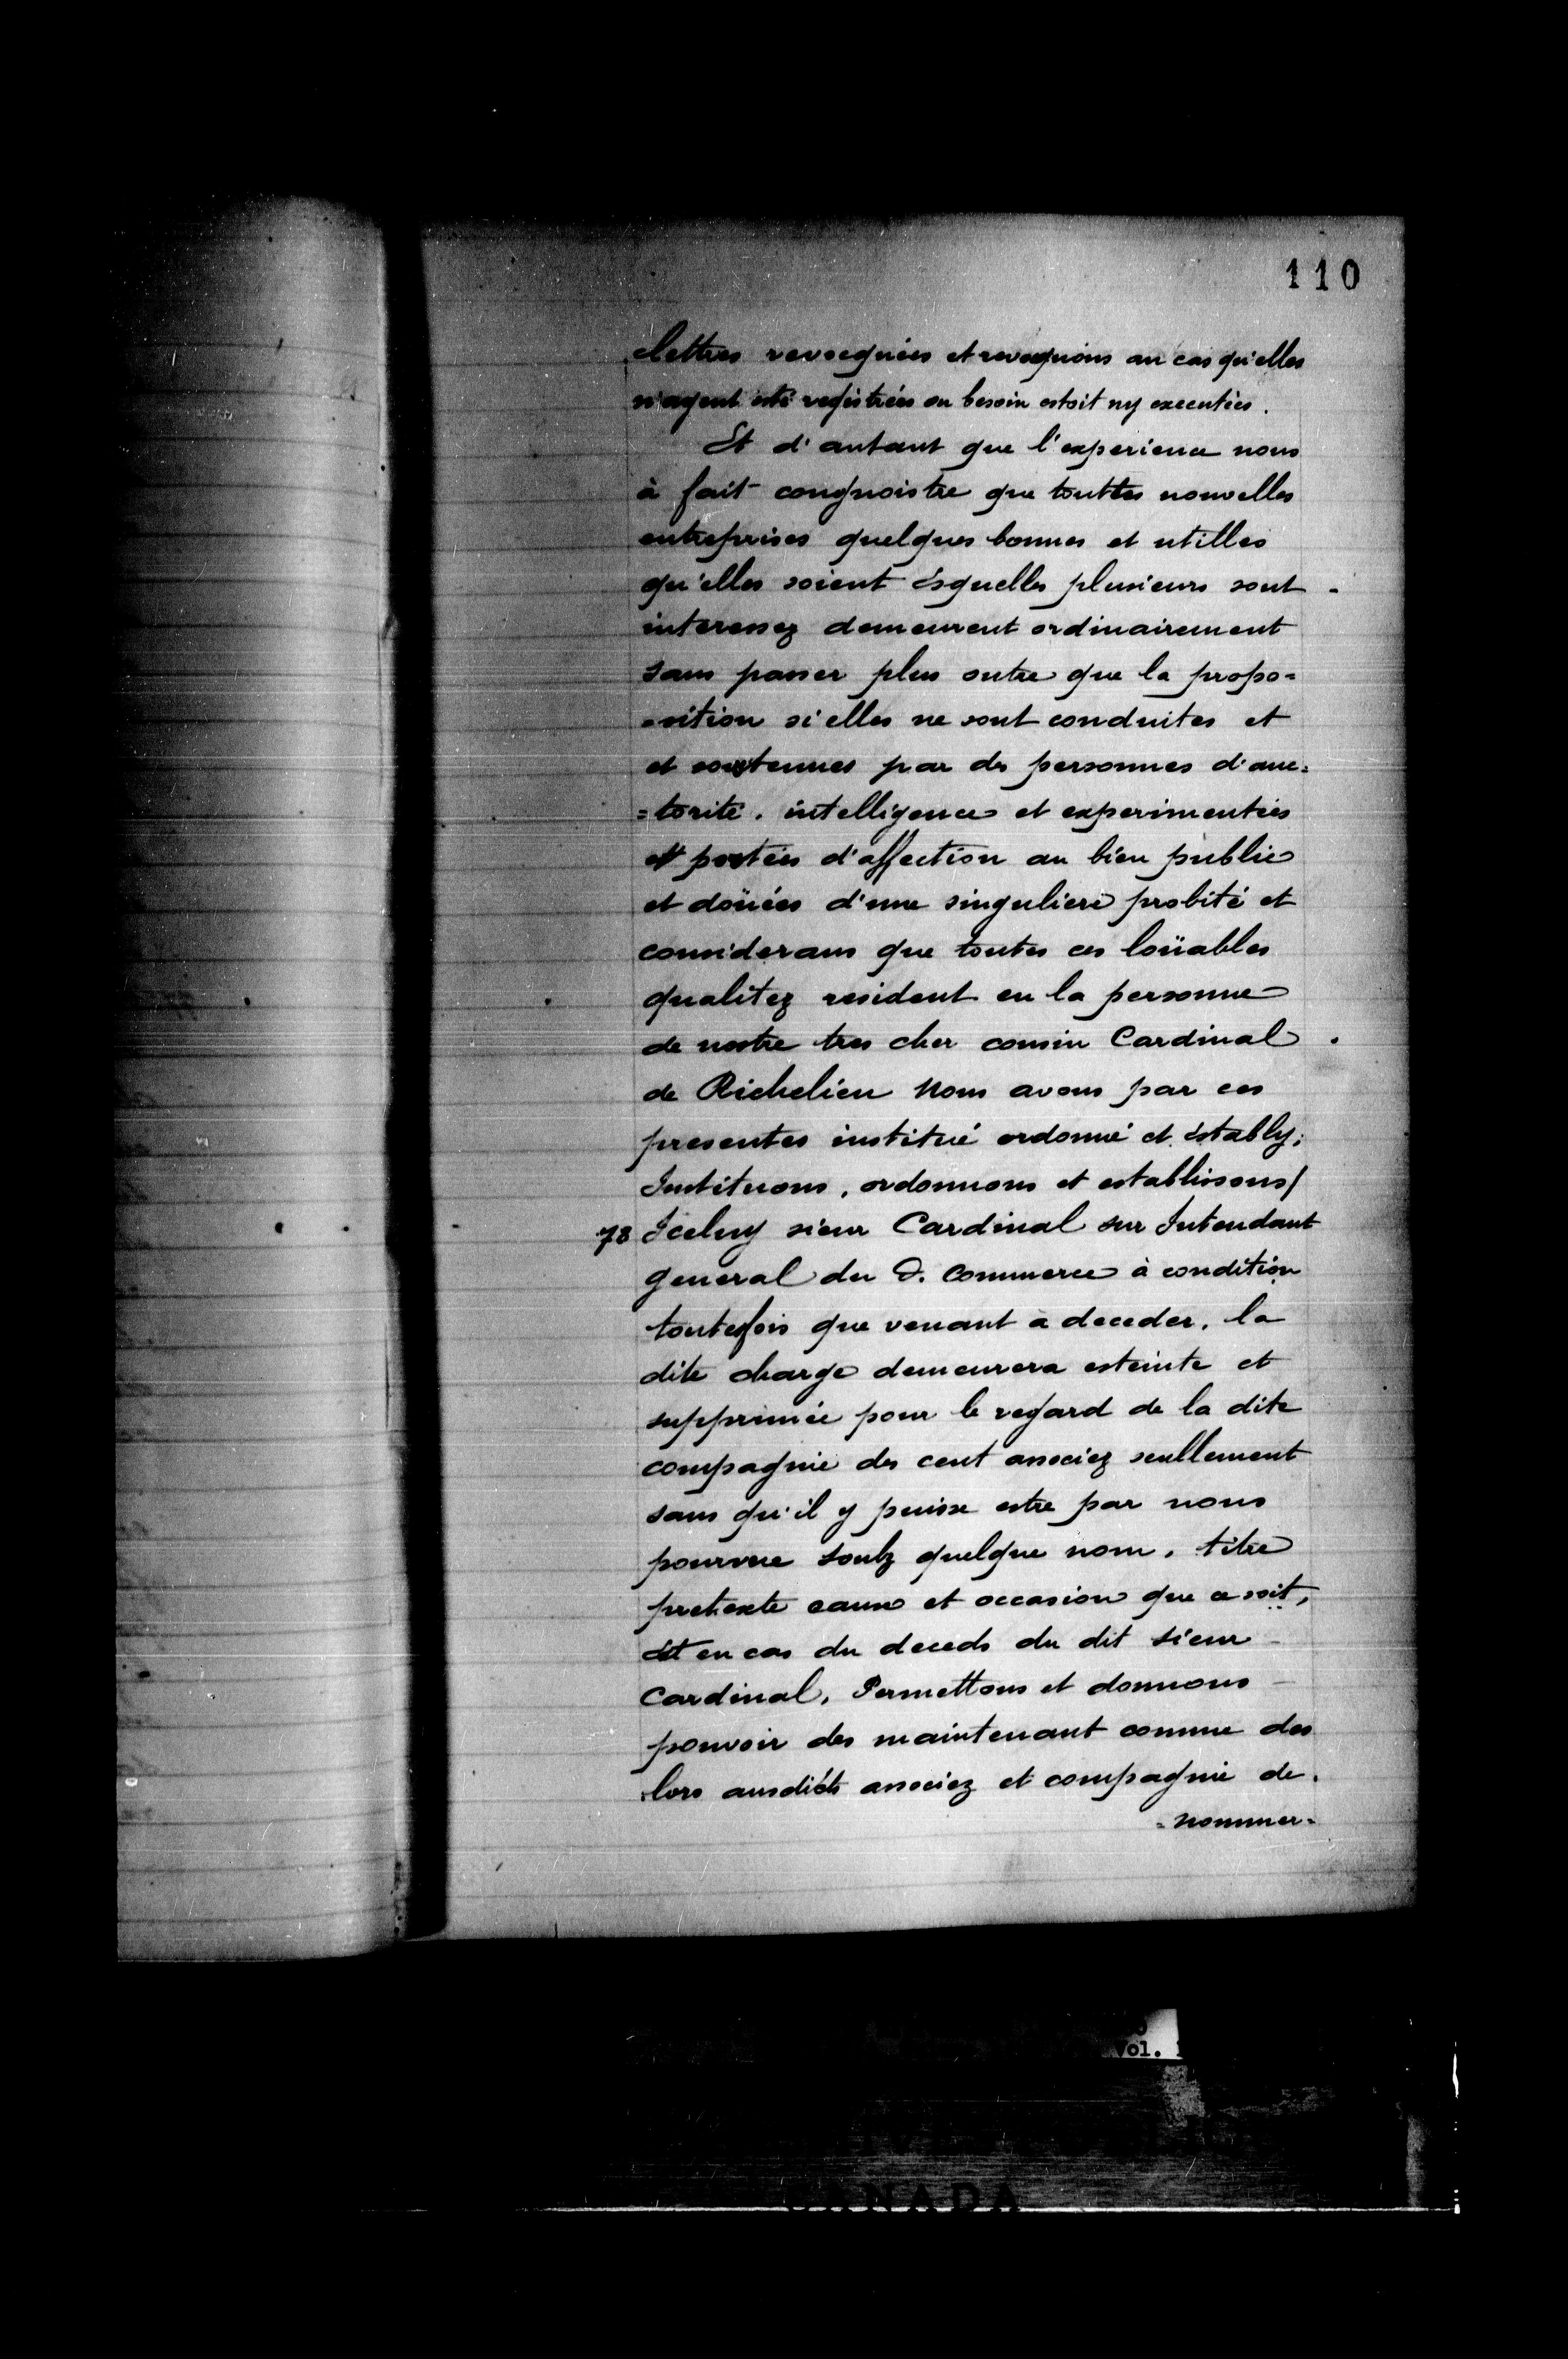 110
lettres revoequées et revoquons au cas qu'elles
n'ayent esté registrées ou besoin estoit ny executées.
Et d'autant que l'experience nous
à fait congnoistre que touttes nouvelles
entreprises quelques bonnes et utilles
qu'elles soient ésquelles plusieurs sont
interessez demeurent ordinairement
sans passer plus outre que la propo=
=sition si elles ne sont conduites et
et soustenues par des personnes d'auc=
=torité. intelligence et experimentées
et portées d'affection au bien public
et doüées d'une singuliere probité et
considerans que toutes ces loüables
qualitez resident en la personne
de nostre tres cher cousin Cardinal
de Richelieu Nous avons par ces
presentes institué ordonné et éstably;
Instituons, ordonnons et establissons/
78 Iceluy sieur Cardinal sur Intendant
general du D. Commerce à condition
toutesfois que venant à deceder, la
dite charge demeurera esteinte et
supprimée pour le regard de la dite
compagnie des cent associez seullement
sans qu'il y puisse estre par nous
pourvue soubz quelque nom, titre
pretexte cause et occasion que ce soit,
et en cas du deceds du dit sieur
Cardinal, Permettons et donnons
pouvoir des maintenant comme des
lors ausdicts associez et compagnie de
=nommer=
Vol.
CANADA